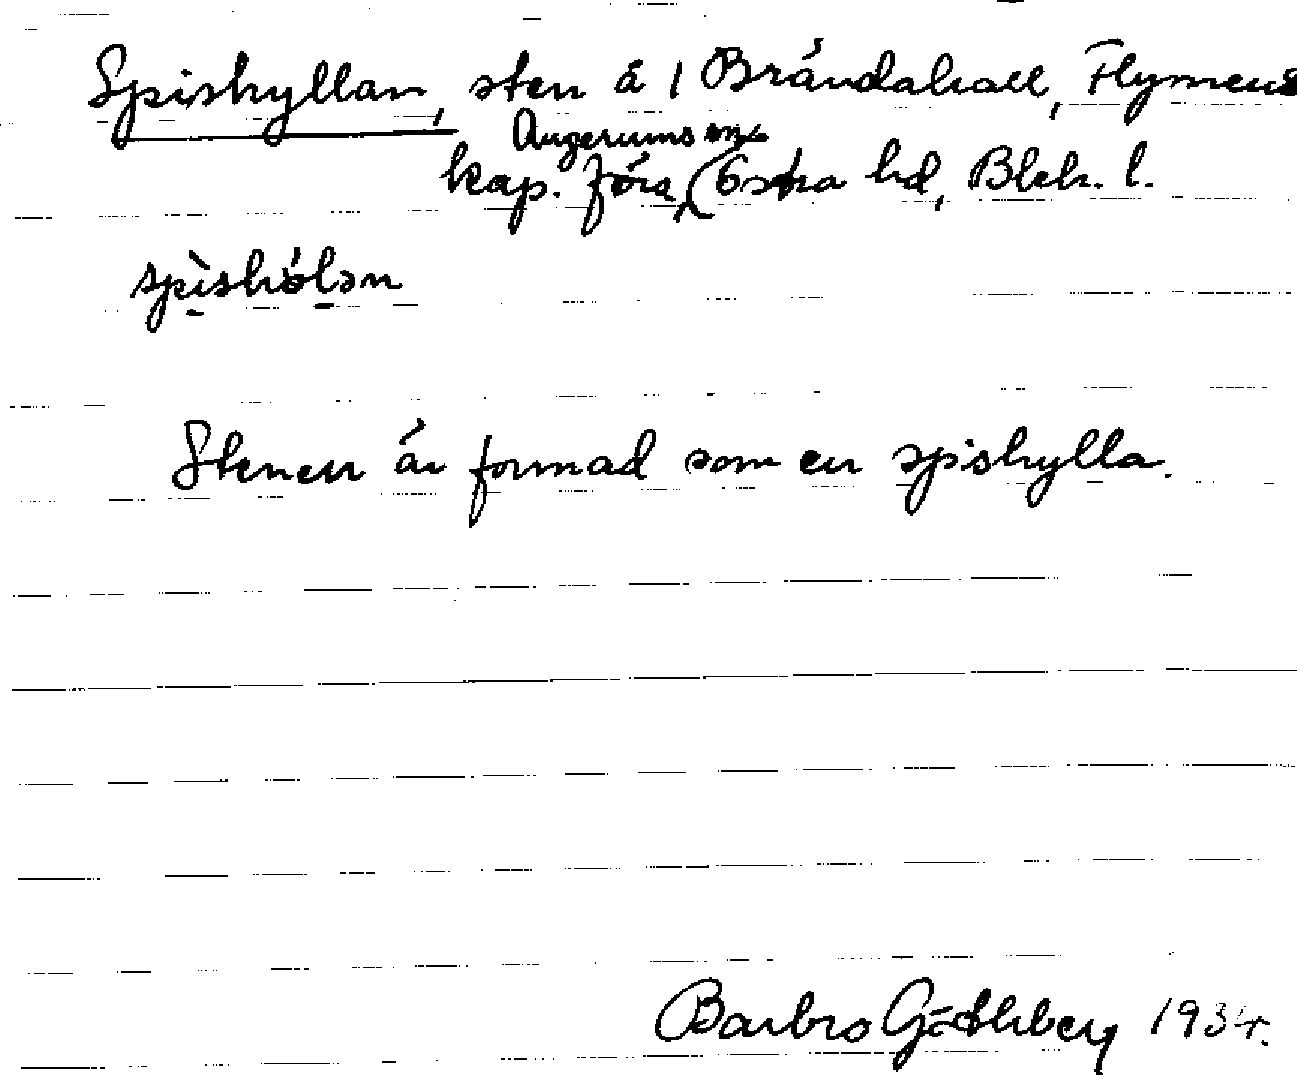 Spishyllan, sten å 1 Brändahall, Flymens
Augerums sn
kap. förs, Östra hd, Blek. l.
spishölən
Stenen är formad som en spishylla.
Barbro Göthberg 1934.